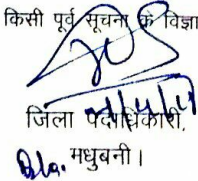 किसी पूर्व सूचना के विज्ञा
जिला पदाधिकारी,
मधुबनी।